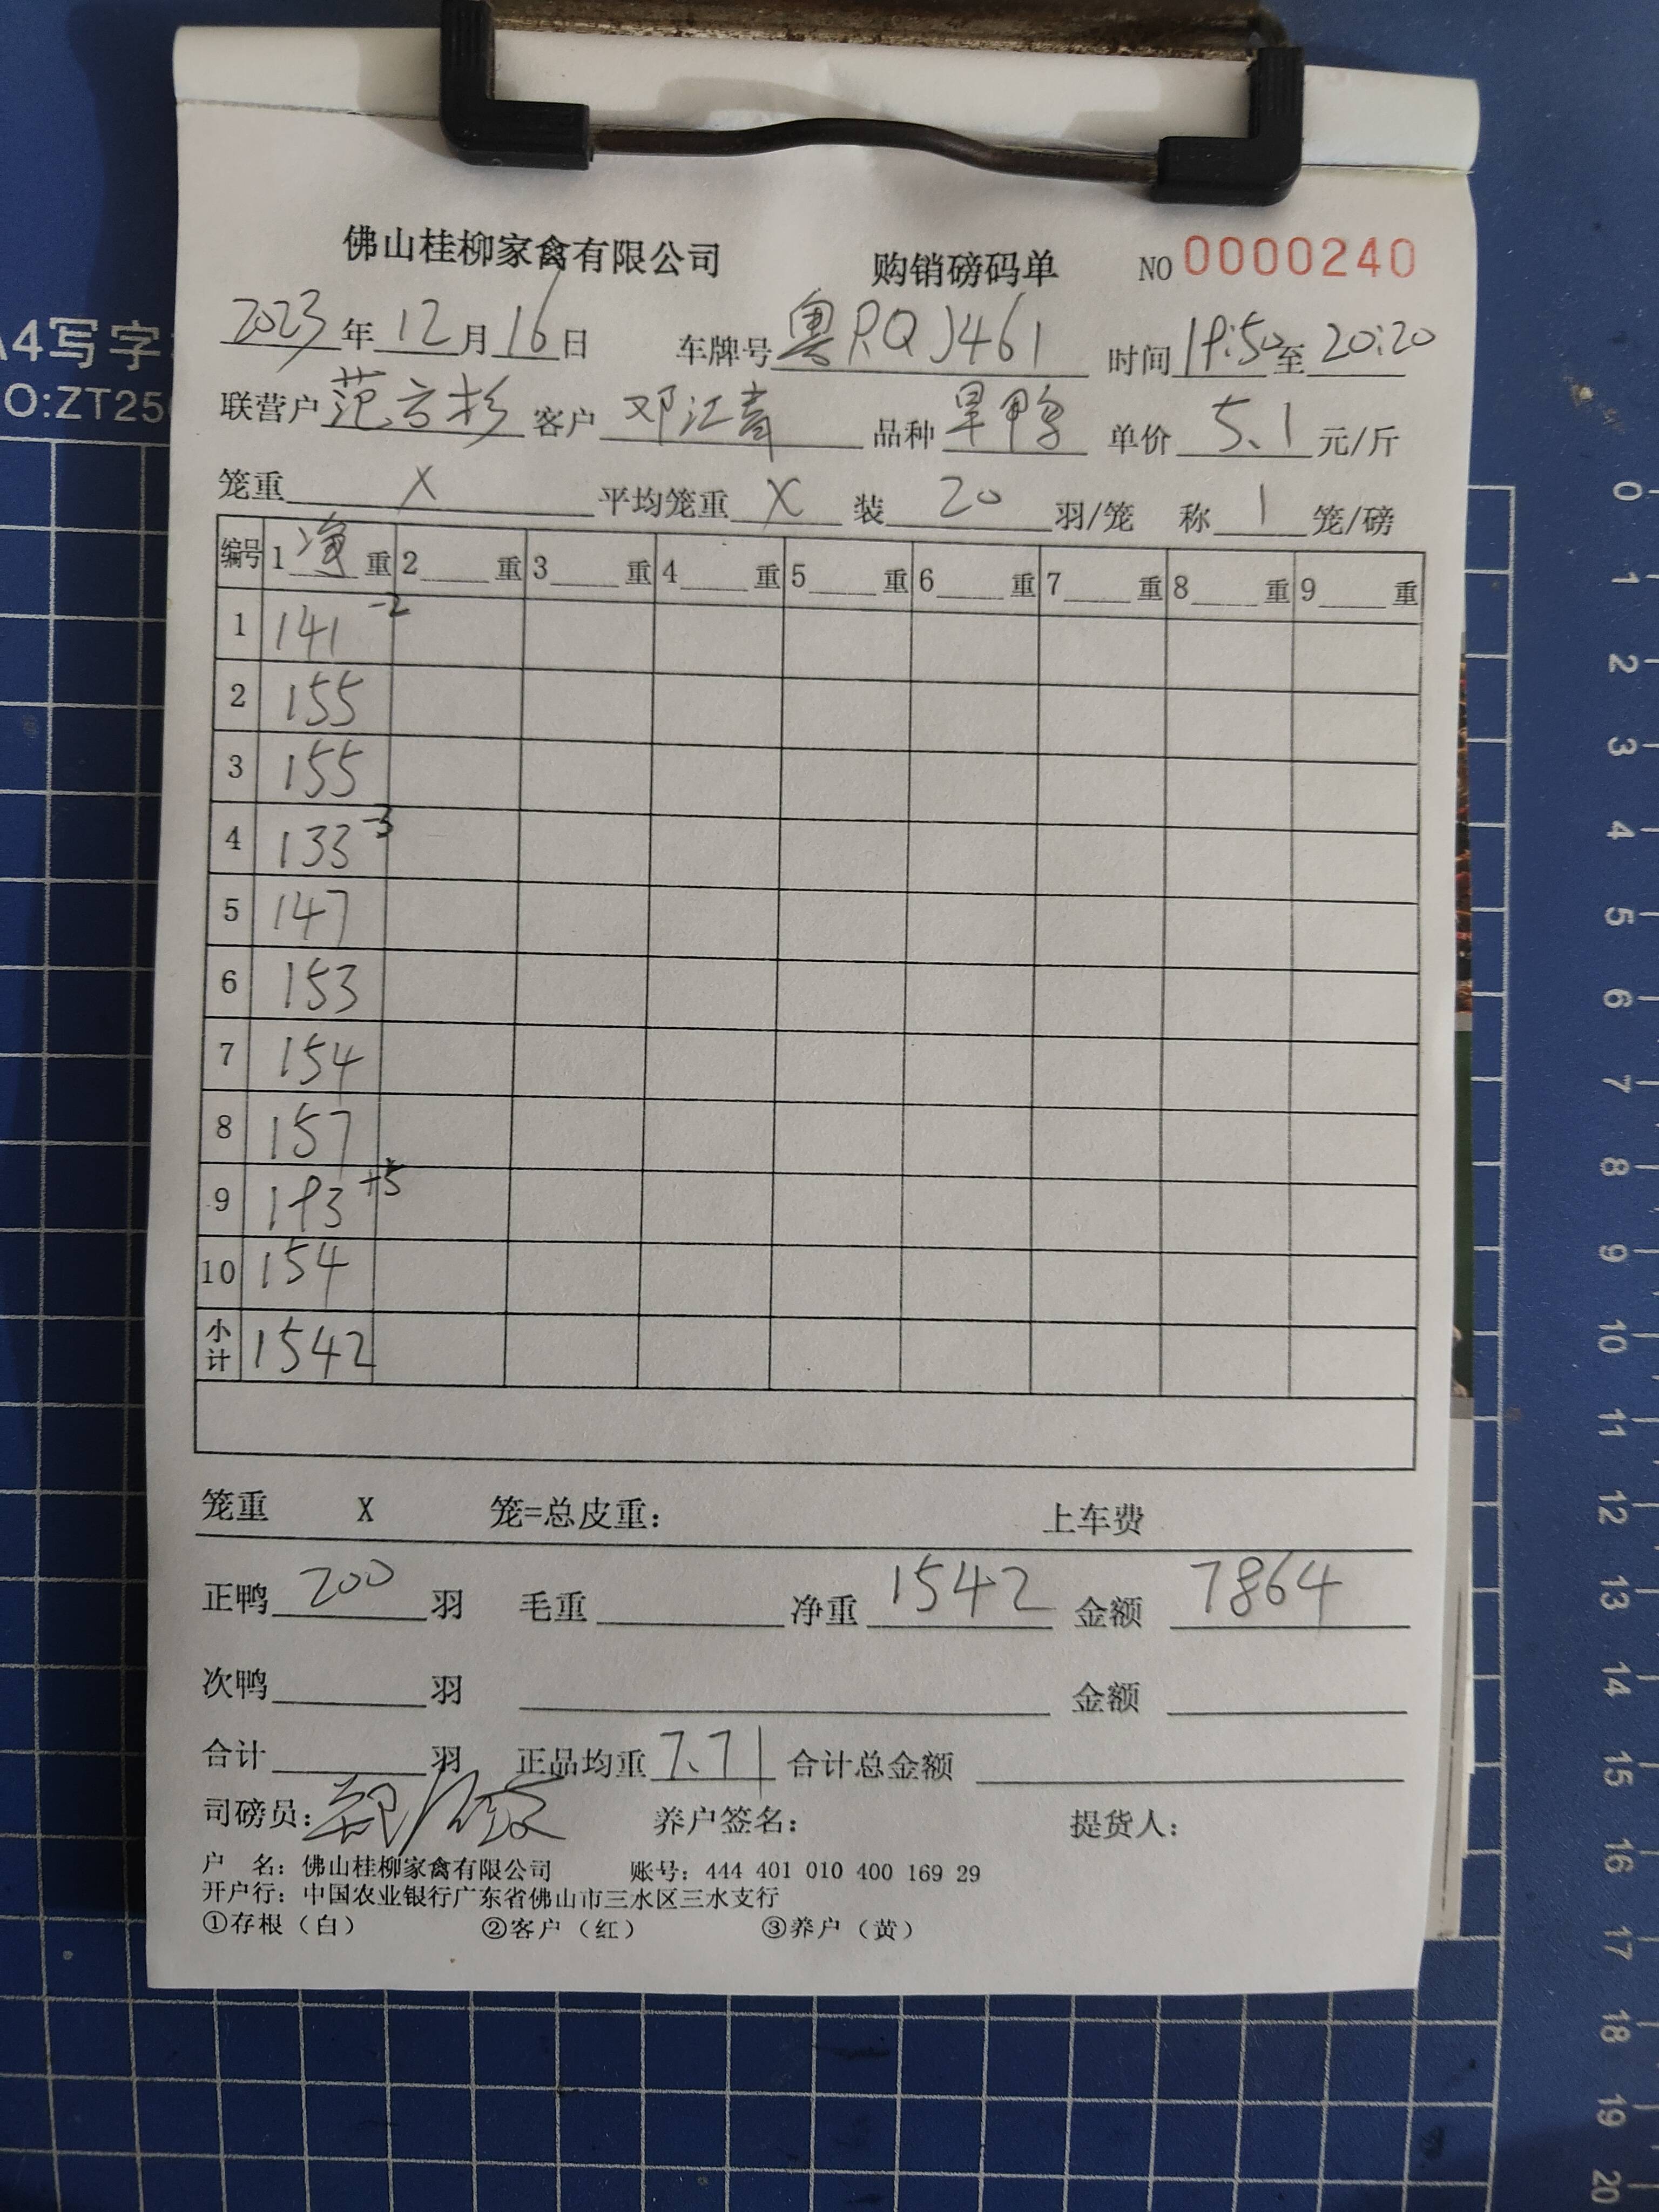 佛山桂柳家禽有限公司 购销磅码单 NO 0000240
2023年12月16日 车牌号 粤RQJ461 时间 19:50至20:20
联营户 范云杉 客户 邓江青 品种 旱鸭 单价 5.1 元/斤
笼重 X 平均笼重 X 装 20 羽/笼 称 1 笼/磅
编号 1 净 重 2 重 3 重 4 重 5 重 6 重 7 重 8 重 9 重
1 141 -2
2 155
3 155
4 133 -3
5 147
6 153
7 154
8 157
9 193 +5
10 154
小计 1542
笼重 X 笼=总皮重: 上车费
正鸭 200 羽 毛重 净重 1542 金额 7864
次鸭 羽 金额
合计 羽 正品均重 7.71 合计总金额
司磅员: 养户签名: 提货人:
户 名: 佛山桂柳家禽有限公司 账号: 444 401 010 400 169 29
开户行: 中国农业银行广东省佛山市三水区三水支行
①存根（白） ②客户（红） ③养户（黄）
A4写字
O:ZT25
0
1
2
3
4
5
6
7
8
9
10
11
12
13
14
15
16
17
18
19
20